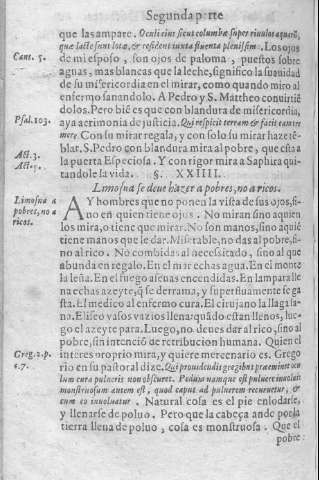 Segunda parte
que las ampare. Oculi eius sicut columbæ super riuulos aquarũ,
quæ lacte sunt lotæ, & resident iuxta fluenta plenissim. Los ojos
Cant. 5.
de mi esposo, son ojos de paloma, puestos sobre
aguas, mas blancas que la leche, significo la suauidad
de su misericordia en el mirar, como quando miro al
enfermo sanandolo. A Pedro y S. Mattheo conuirtiẽ
dolos. Pero biẽ es que con blandura de misericordia,
Psal. 103.
aya acrimonia de justicia. Qui respicit terram & facit contre
mere. Con su mirar regala, y con solo su mirar haze tẽ-
blar. S. Pedro con blandura mira al pobre, que esta a
Act. 3.
la puerta Especiosa. Y con rigor mira a Saphira qui-
Act.
tandole la vida. §. XXIIII.
Limosna se deue hazer a pobres, no a ricos.
Limosna a
pobres, no a
ricos.
AY hombres que no ponen la vista de sus ojos, si-
no en quien tiene ojos. No miran sino a quien
los mira, o tiene que mirar. No son manos, sino a quiẽ
tiene manos que le dar. Miserable, no das al pobre, si-
no al rico. No combidas al necessitado, sino al que
abunda en regalo. En el mar echas agua. En el monte
leña. En el fuego asenas encendidas. En lampara lle
na echas azeyte, q̃ se derrama, y superfluamente se ga
sta. El medico al enfermo cura. El cirujano la llaga sa-
na. Eliseo vasos vazios llena: quãdo estan llenos, lue-
go el azeyte para. Luego, no deues dar al rico, sino al
pobre, sin intenciõ de retribucion humana. Quien el
Greg. 2. p.
interes proprio mira, y quiere mercenario es. Grego
rio en su pastoral dize. Qui prouidendis gregibus præeminet ocu
lum cura pulueris non obscuret. Pedum namque est pulueri inuolui
monstruosum autem est, quod caput ad puluerem recuruetur, &
cum eo inuoluatur. Natural cosa es el pie enlodarse,
y llenarse de poluo. Pero que la cabeça ande por la
tierra llena de poluo, cosa es monstruosa. Que el
pobre